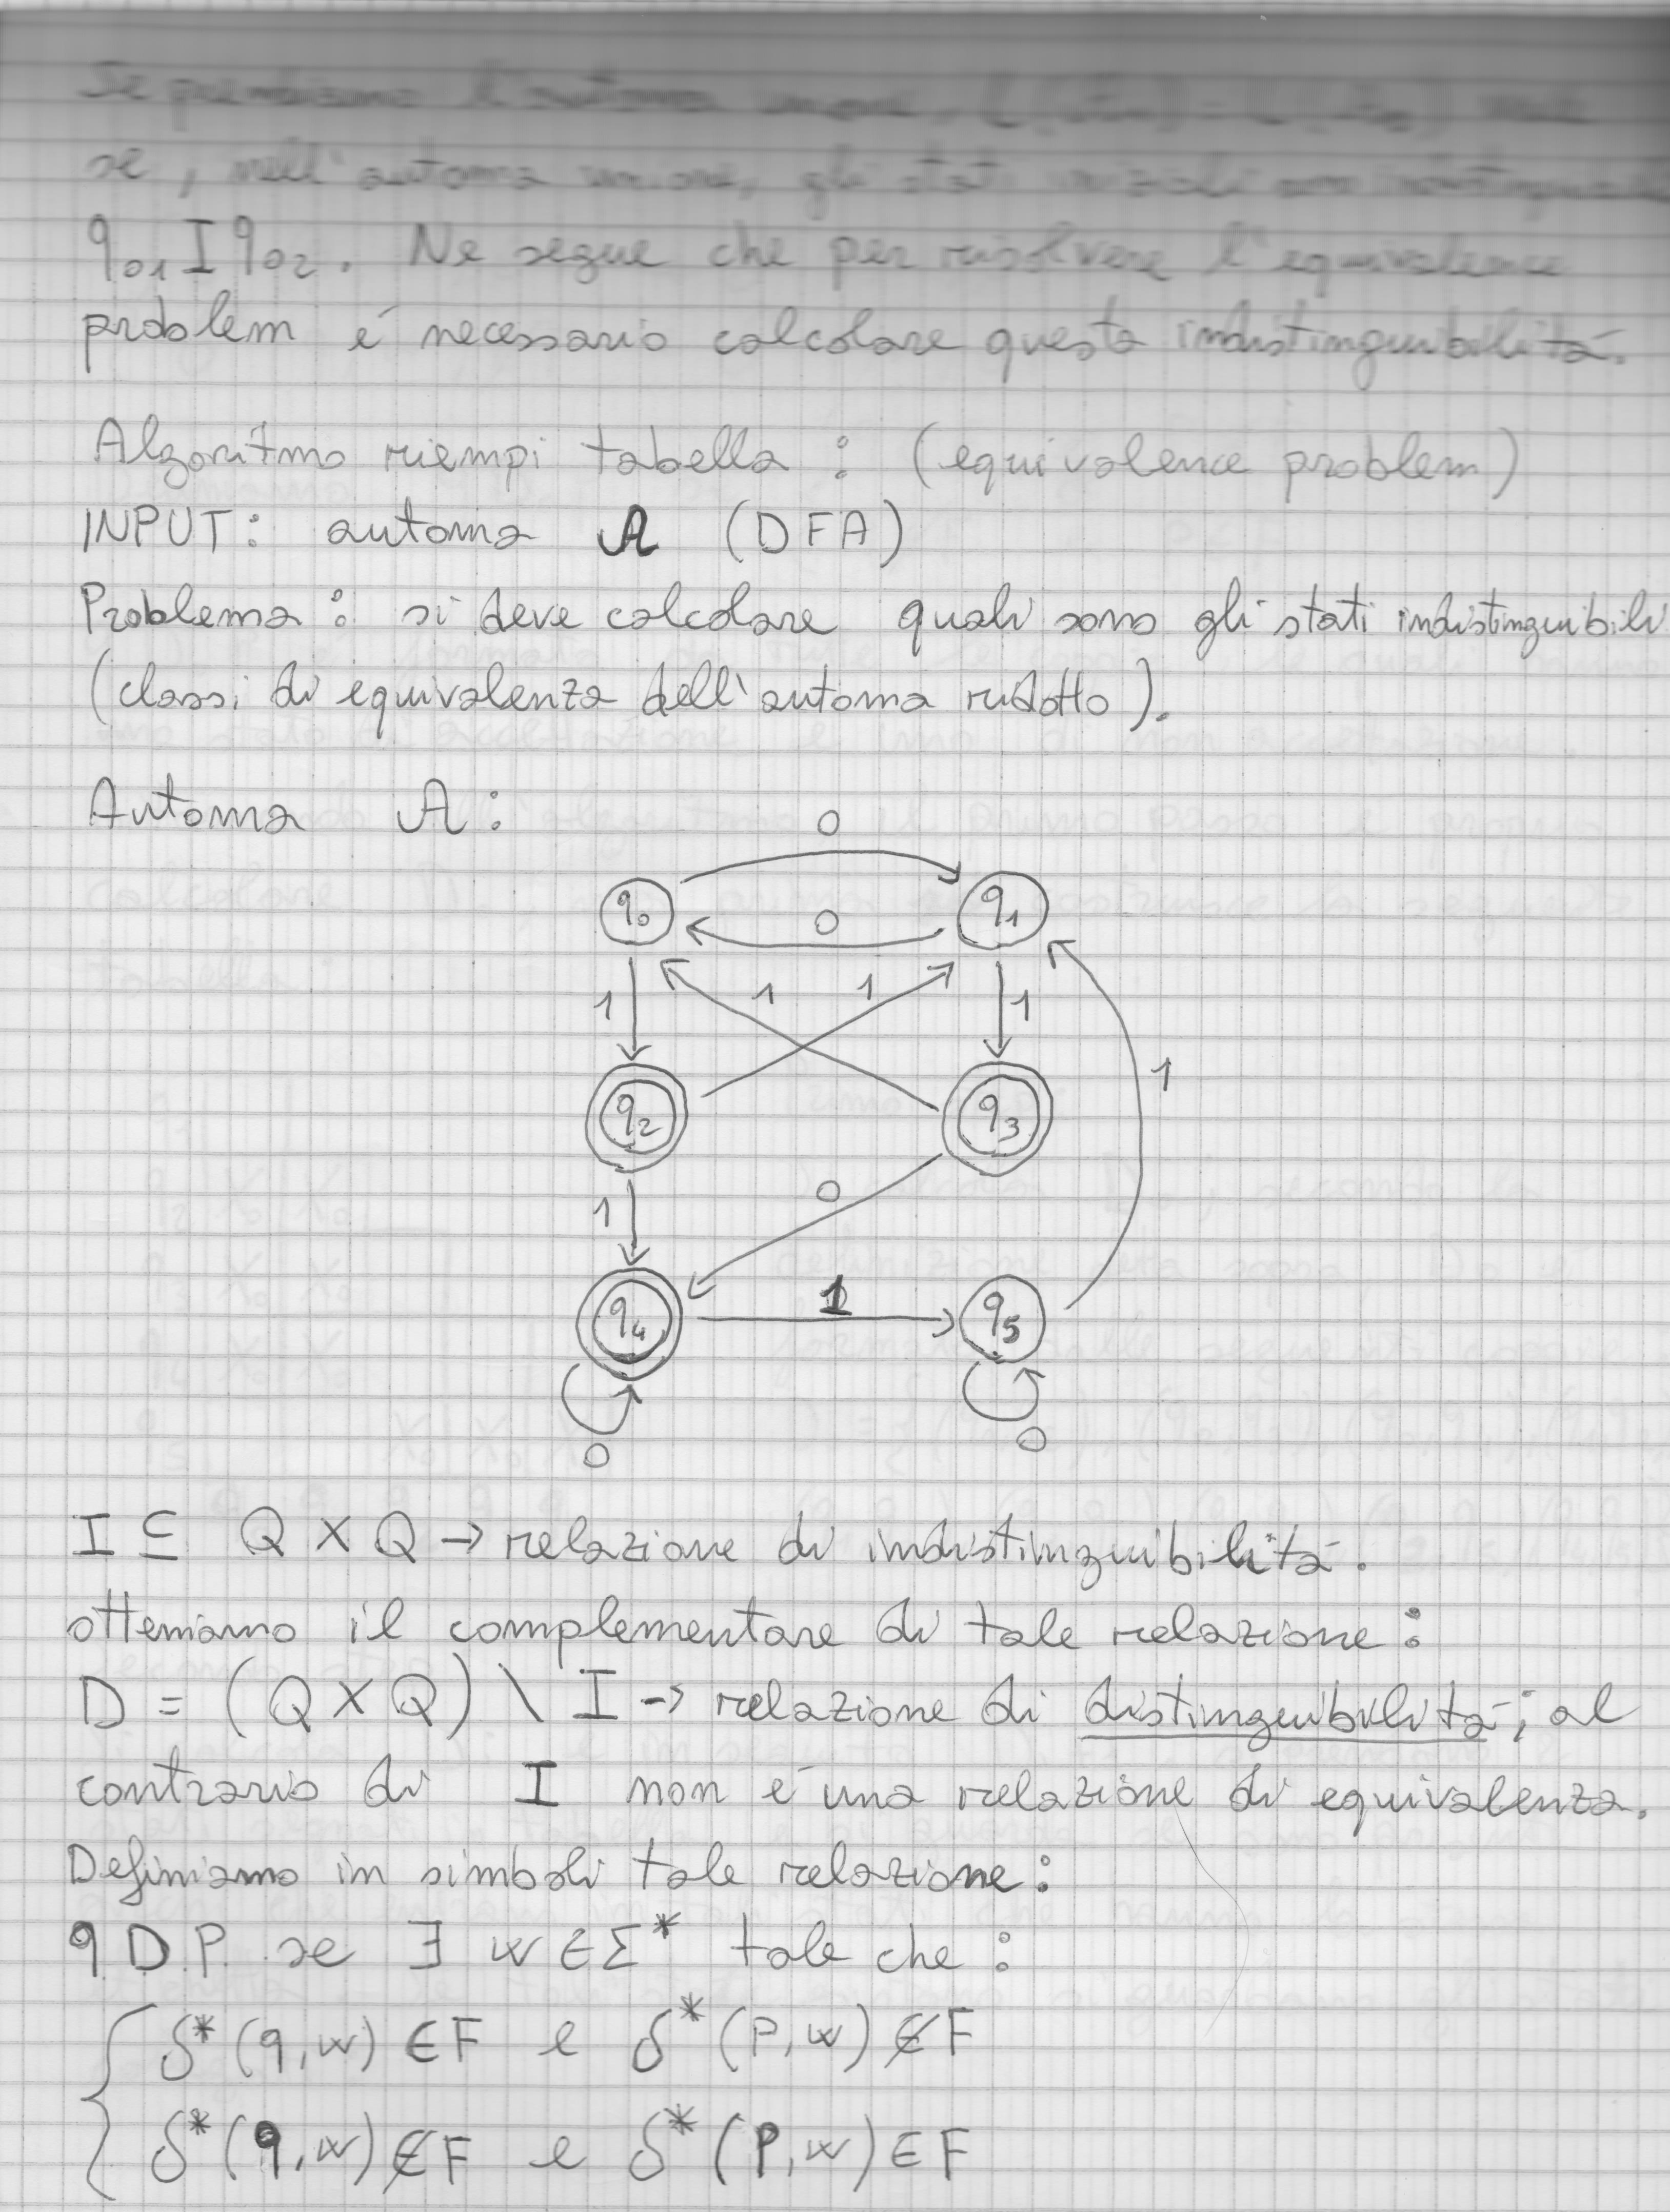 Se prendiamo l'automa unione, L(
se, nell'automa unione, gli stati iniziali sono indistinguibili
q01 I q02. Ne segue che per risolvere l'equivalence
problem é necessario calcolare questa indistinguibilitá.
Algoritmo riempi tabella : (equivalence problem)
INPUT: automa A (DFA)
Problema : si deve calcolare quali sono gli stati indistinguibili
(classi di equivalenza dell'automa ridotto).
Automa A :
0
q0 q1
0
1 1 1 1
q2 q3
1
1 0
1
q4 q5
0 0
I ⊆ Q X Q → relazione di indistinguibilitá.
otteniamo il complementare di tale relazione :
D = (Q X Q) \ I → relazione di distinguibilitá; al
contrario di I non é una relazione di equivalenza.
Definiamo in simboli tale relazione :
q D P. se ∃ w ∈ Σ* tale che :
δ*(q,w) ∈ F e δ*(P,w) ∉ F
δ*(q,w) ∉ F e δ*(P,w) ∈ F